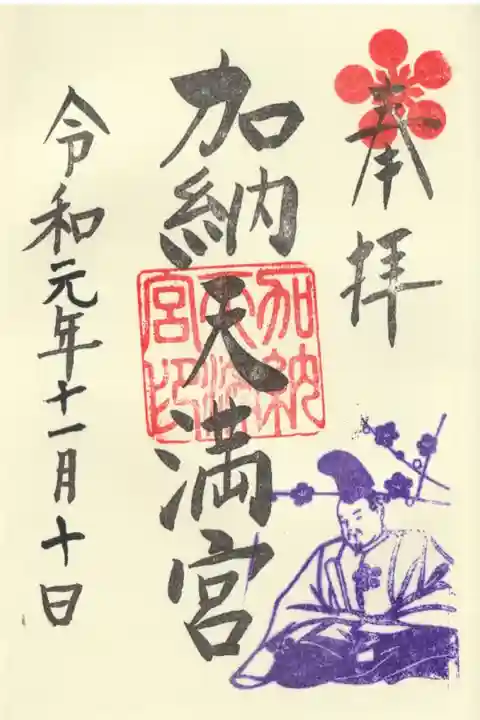 奉拝
加納天満宮
加納天満宮印
令和元年十一月十日